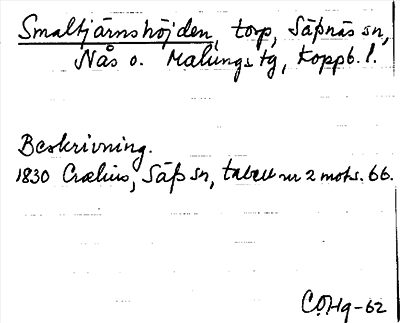 Smaltjärnshöjden, torp, Säfsnäs sn,
Nås o. Malungs tg, Koppb. l.
Beskrivning.
1830 Crælius, Säfs sn, tabell nr 2 mots. 66.
C.O.Hg-62